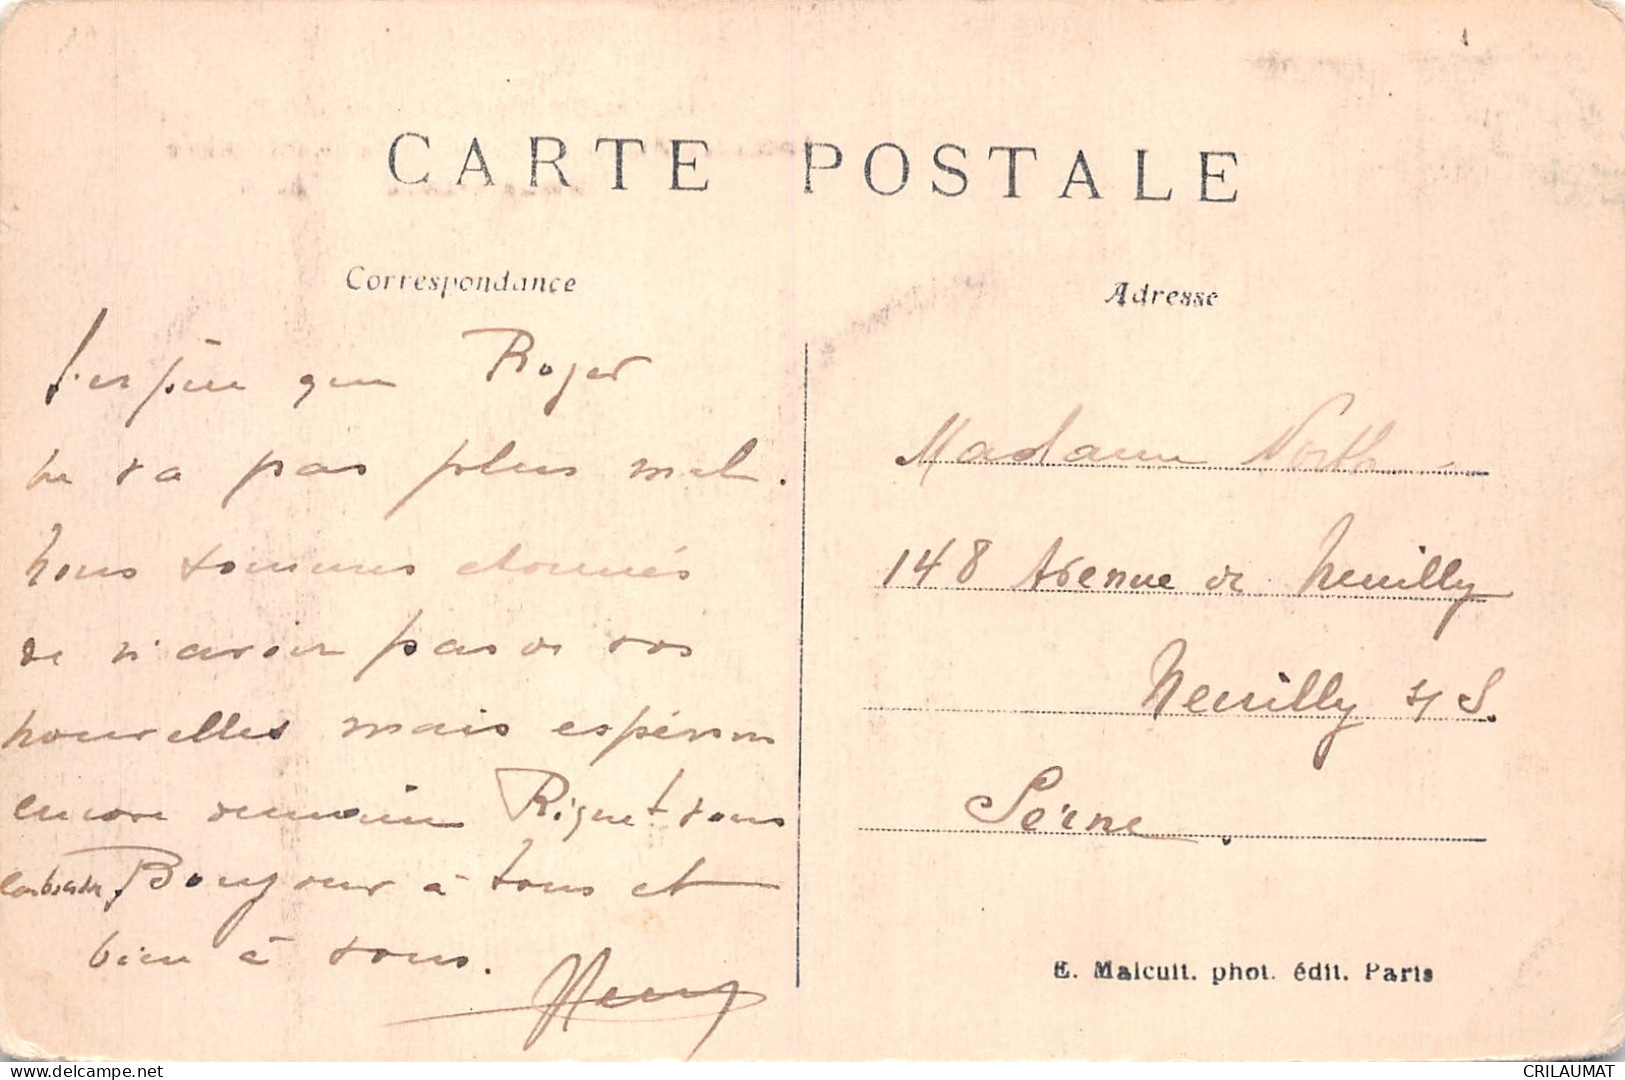 CARTE POSTALE
Correspondance
Adresse
J'espère que Roger
ne va pas plus mal.
nous sommes etonnés
de n'avoir pas de vos
nouvelles mais espérons
encore demain Riquet vous
embrasse, Bonjour à tous et
bien à vous.
Henry
Madame North
148 Avenue de Neuilly
Neuilly s/ S.
Seine
E. Malcuit. phot. édit. Paris
www.delcampe.net
CRILAUMAT